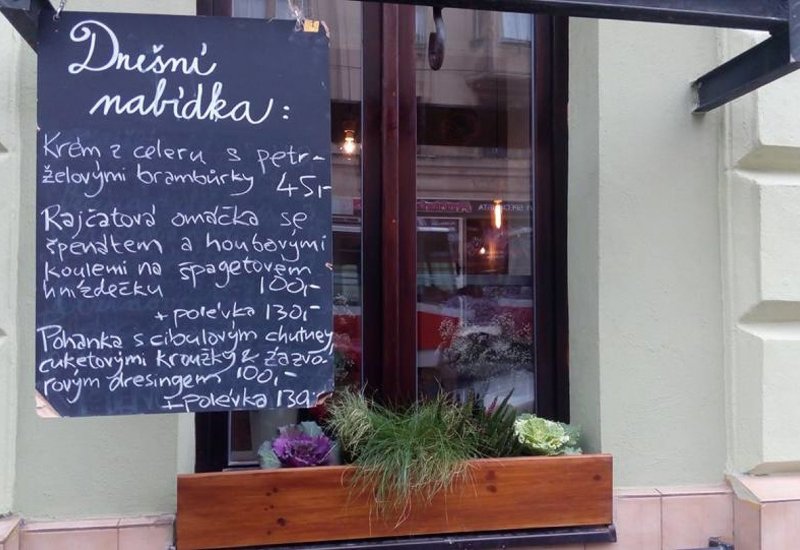 Dnešní
nabídka:
Krém z celeru s petr-
želovými brambůrky 45,-
Rajčatová omáčka se
špenátem a houbovými
koulemi na špagetovém
hnízdečku 100,-
+ polévka 130,-
Pohanka s cibulovým chutney,
cuketovými kroužky & zázvo-
rovým dresingem 100,-
+ polévka 130,-